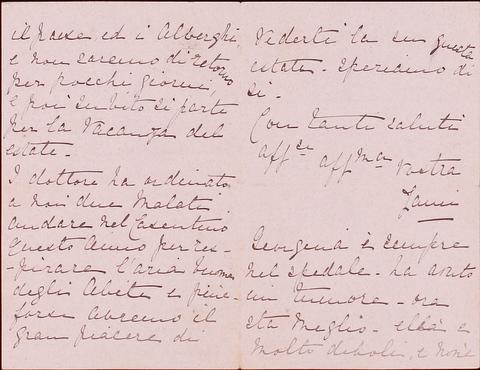 il paese ed i Alberghi
e non saremo di ritorno
per pochi giorni,
e poi subito si parte
per la Vacanza del
estate -
I dottore ha ordinato
a noi due Malati
andare nel Casentino
questo Anno per res-
-pirare l'aria buona
degli Abeti e pini -
forse abremo il
gran piacere di
Vederti la su questa
estate - speriamo di
si -
Con tante saluti
aff.ce aff.ma vostra
Georgina è sempre
nel spedale - ha avuto
un tumore - ora
sta meglio - ebbà e
molto deboli, e non è